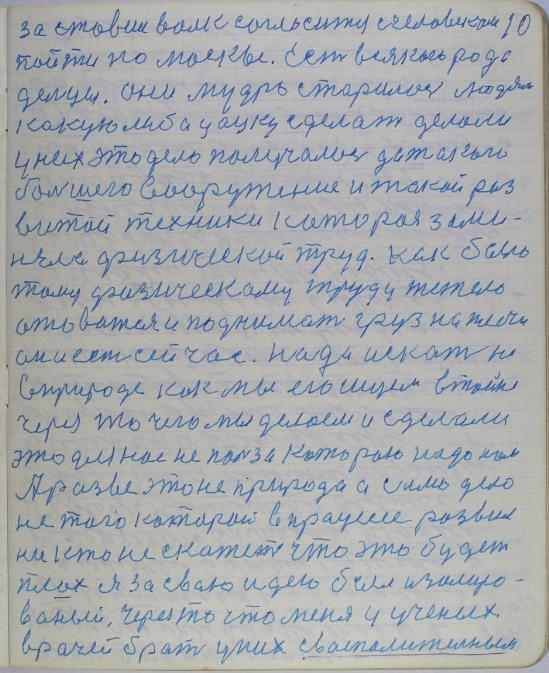 за ставил волк согласится с человеком 10
пойти по москве. Есть всякого рода
делци. они мудрь старилов людям
какую либа уацку сделат делали
у них это дело получалос до такого
большего Вооружение и такой раз
витой техники Которая заме-
няла физической труд. Как было
тому физическому труду тежело
отоватся и поднимат груз на плечи
они есть сейчас. Нада искат не
в природе как мы его ищем в тойне
через то чего мы делоем и сделали
это для нас не польза Которою надо нам
А разве это не природа а само дело
не того Которой в працесе развил
ни кто не скажет что это будет
плох я за сваю идею был изолиро-
ваный, Через то что меня у ученых
врачей брат у них своспалительным